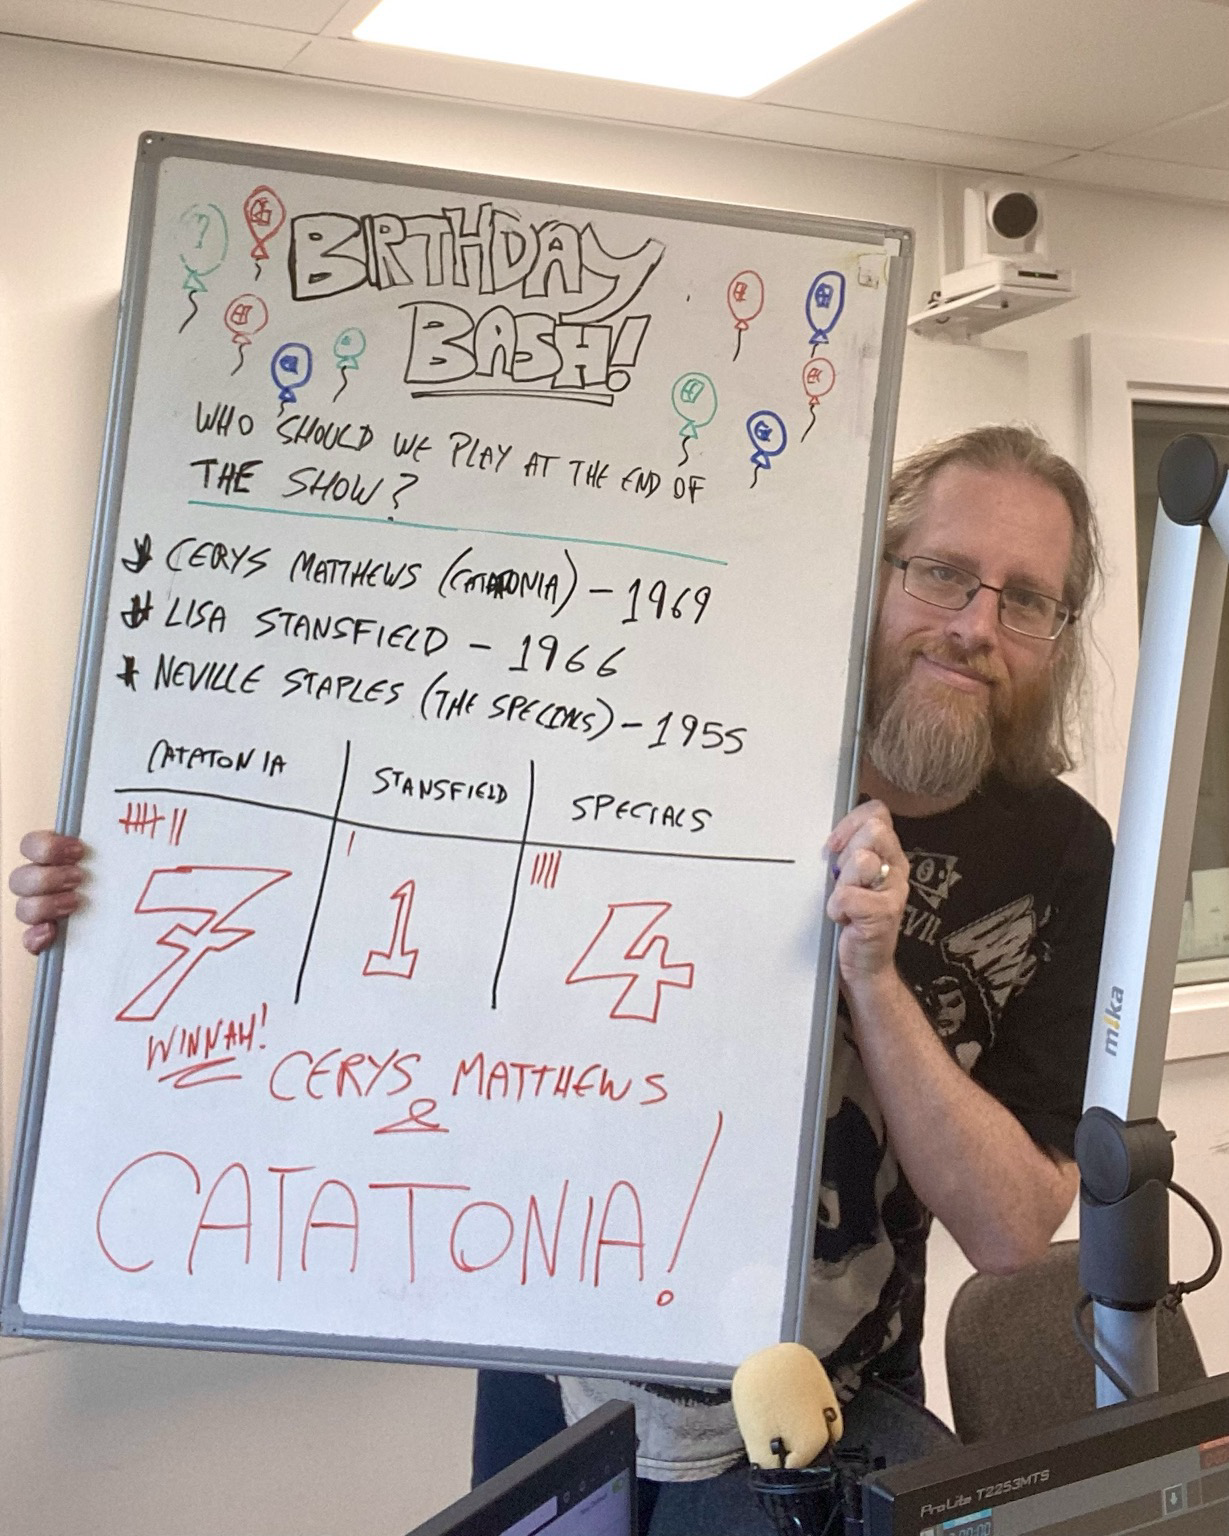 BIRTHDAY
BASH!
WHO SHOULD WE PLAY AT THE END OF
THE SHOW?
* CERYS MATTHEWS (CATATONIA) – 1969
* LISA STANSFIELD – 1966
* NEVILLE STAPLES (THE SPECIALS) – 1955
CATATONIA STANSFIELD SPECIALS
7 1 4
WINNAH!
CERYS MATTHEWS
&
CATATONIA!
EVIL
mika
ProLite T2253MTS